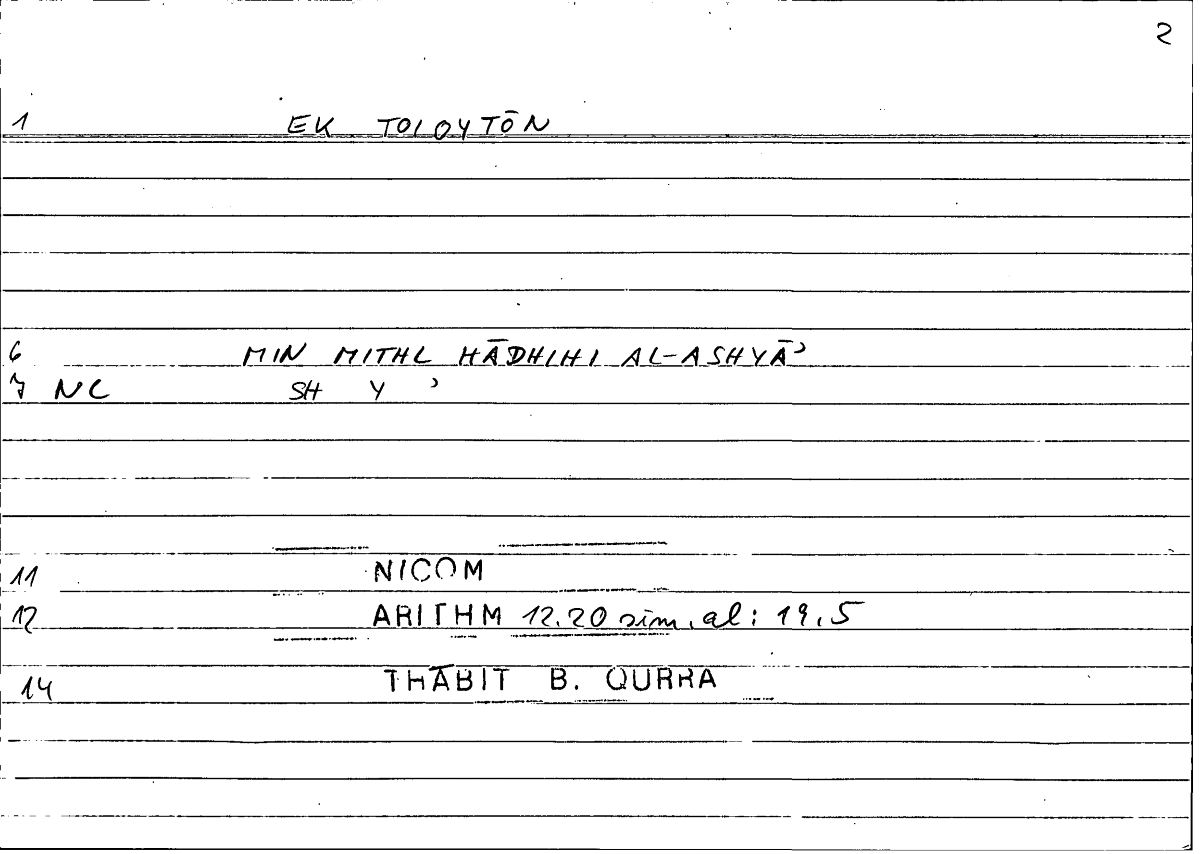 2
1 EK TOIOYTŌN
6 MIN MITHL HĀDHIHI AL-ASHYĀʾ
7 NC SH Y ʾ
11 NICOM
12 ARITHM 12.20 sim. al: 19.5
14 THĀBIT B. QURRA